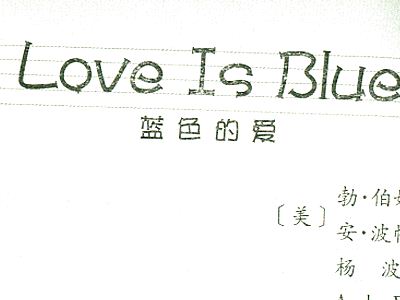 Love Is Blue
蓝色的爱
〔美〕
勃·伯
安·波
杨 波